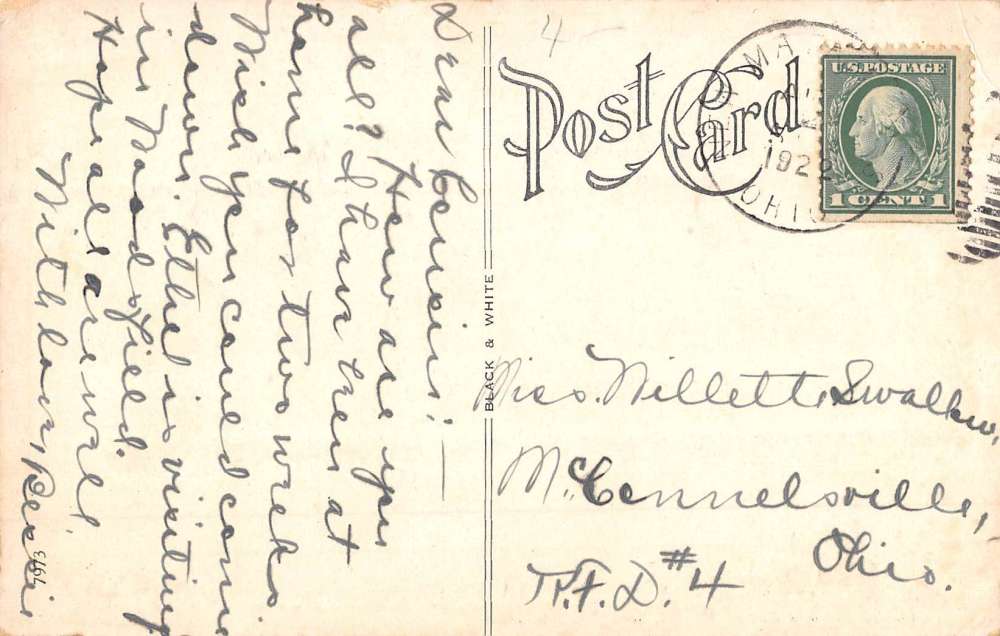 Dear Cousins:—
How are you
all? I have been at
home for two weeks
Wish you could come
down. Ethel is visiting
in Woodsfield.
Hope all are well.
With love, Bessie
7973
BLACK & WHITE
4
Post Card
MA
1922
OHIO
U.S. POSTAGE
1 CENT 1
Miss. Willett Swallow,
McConnelsville,
Ohio.
R.F.D. #4